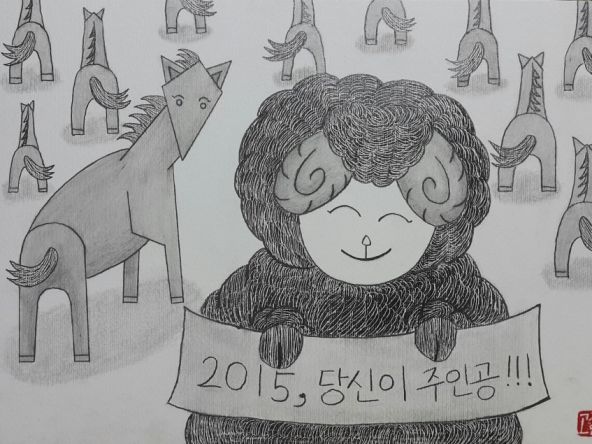 2015, 당신이 주인공!!!